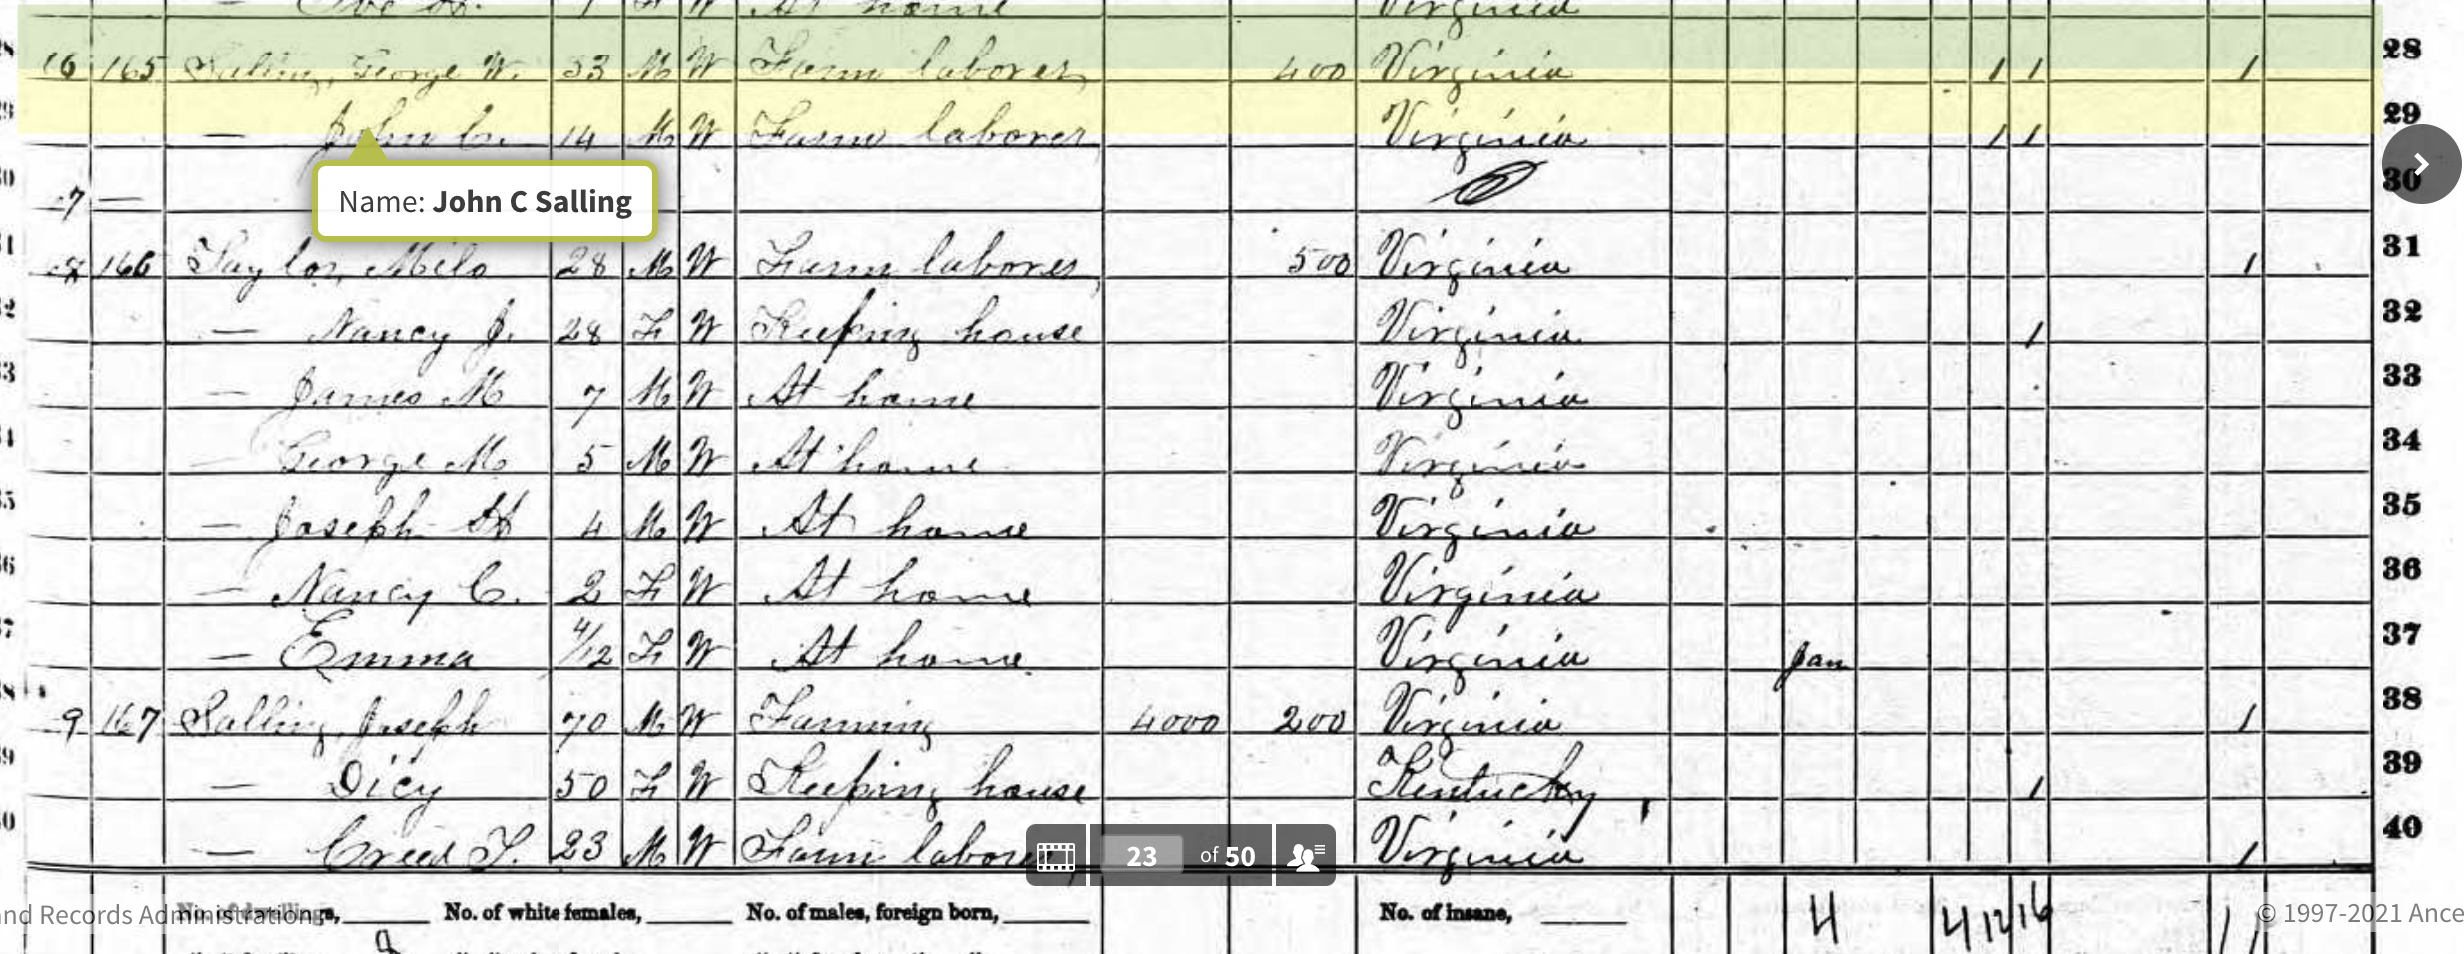 At home Virginia
28
16 165 Salling, George W. 33 M W Farm laborer 400 Virginia 1 1 1 28
29
— John C. 14 M W Farm laborer Virginia 1 1 29
Name: John C Salling
7 — 30
166 Taylor, Milo 28 M W Farm laborer 500 Virginia 1 31
— Nancy J. 28 F W Keeping house Virginia 1 32
— James M 7 M W At home Virginia 33
— George M 5 M W At home Virginia 34
— Joseph H 4 M W At home Virginia 35
— Nancy C. 2 F W At home Virginia 36
— Emma 4/12 F W At home Virginia Jan 37
9 167 Salling, Joseph 70 M W Farming 4000 200 Virginia 1 38
— Dicy 50 F W Keeping house Kentucky 1 39
— Creed T. 23 M W Farm laborer Virginia 1 40
23 of 50
No. of dwellings, No. of white females, No. of males, foreign born, No. of insane, 4 4 12 16 11
and Records Administration © 1997-2021 Ance